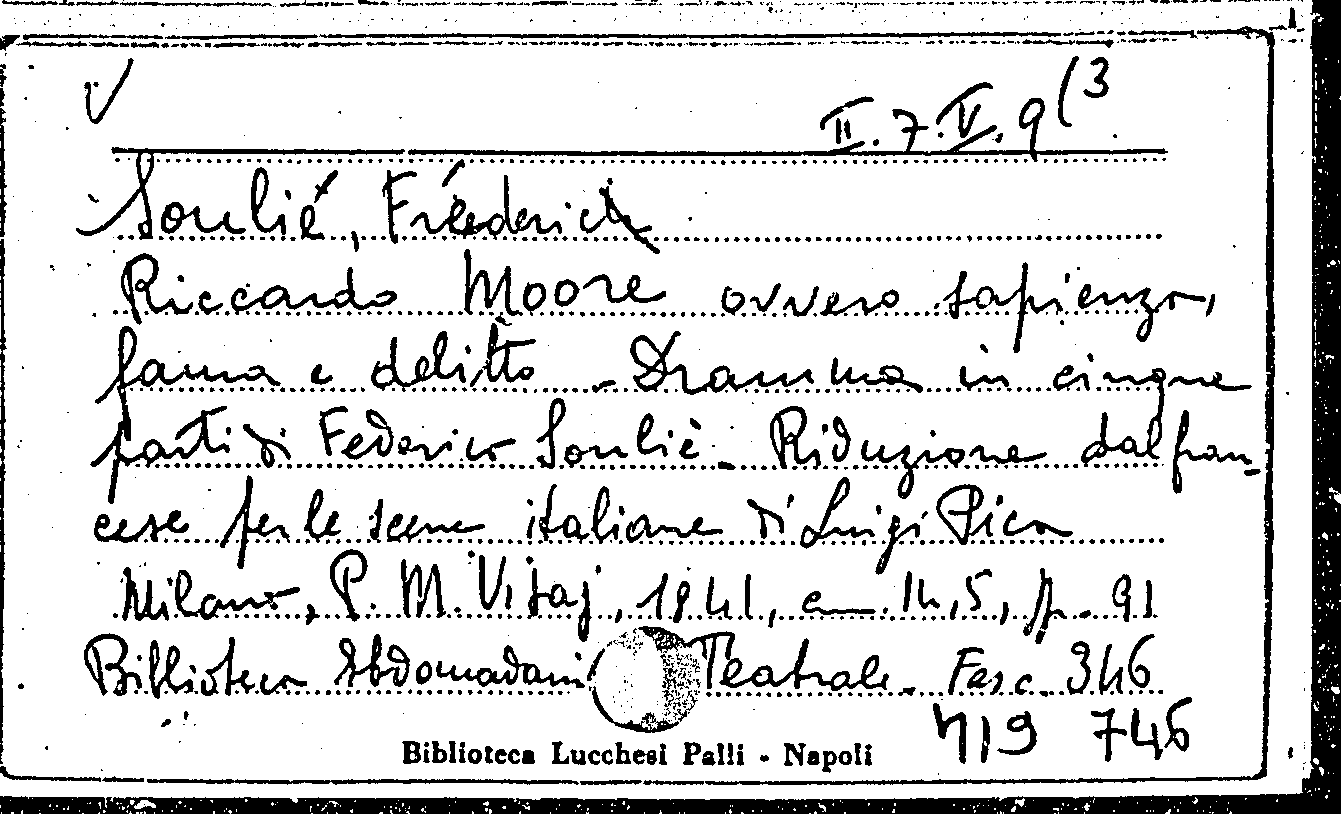 II.7.V.9(3
Soulié, Fréderic
Riccardo Moore ovvero sapienza,
fama e delitto - Dramma in cinque
parti di Federico Soulié - Riduzione dal fran-
cese per le scene italiane di Luigi Pico
Milano, P. M. Visaj, 1841, cm. 14,5, p. 91
Biblioteca Ebdomadaria Teatrale - Fasc. 346
Biblioteca Lucchesi Palli - Napoli
719 746